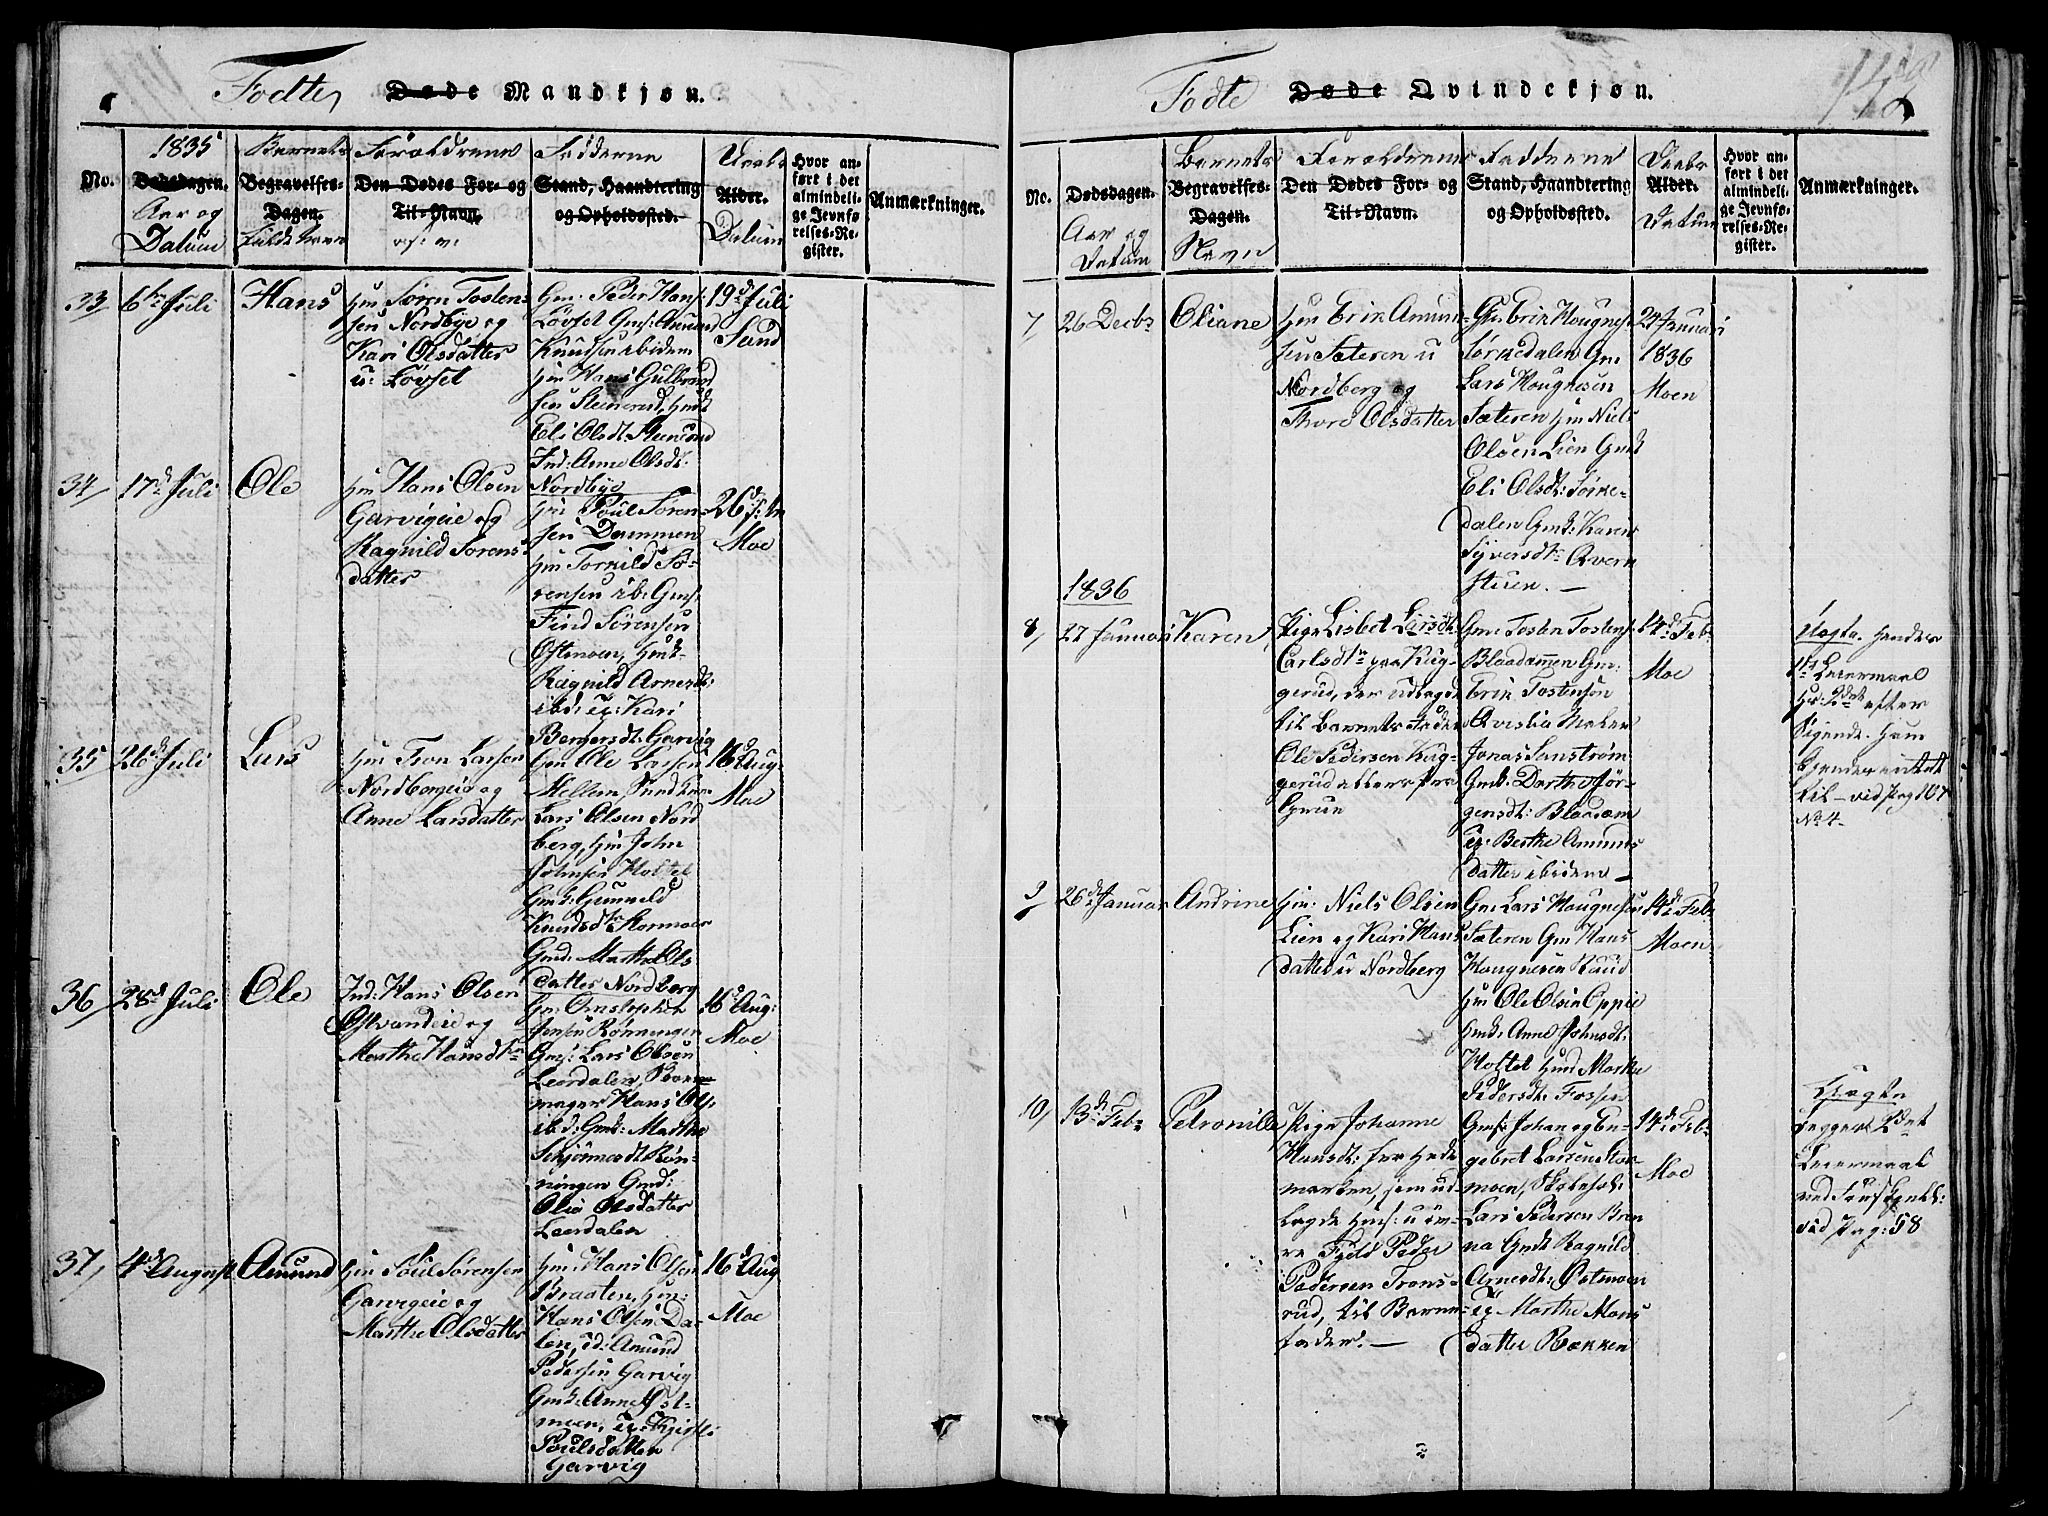 Fødte Døde Mandkjøn.
No.
1835
Dødsdagen.
Aar og
Datum
Barnets
Begravelses-
Dagen.
Forældrenes
Den Dødes For- og
Til-Navn.
Fadderne
Stand, Haandtering
og Opholdssted.
Daabs
Alder.
Datum
Hvor an-
ført i det
almindeli-
ge Jevnfø-
relses-Re-
gister.
Anmærkninger.
33
6te Juli
Hans
Hm Søren Tosten-
sen Nordbye og
Kari Olsdatter
u: Løvset
Gm: Peder Hans:
Løvset Gms: Amund
Knudsen ibidem
Hm Hans Gulbrand
sen Steinerud, Hmk
Eli Olsdt: Steinerud
Ind: Anne Olsdt:
Nordbye
19d Juli
Sand
34
17d Juli
Ole
Hm Hans Olsen
Garvigeie og
Ragnild Sørens
datter
Hm Poul Søren-
sen Dammen
Hm Torkild Sø-
rensen ib: Gms:
Find Sørensen
Ostmoen, Hmk
Ragnild Arnesdt:
ibd: ig: Kari
Bergersdt: Garvig
26d
Moe
35
26d Juli
Lars
Hm Tron Larsen
Nordbergeie og
Anne Larsdatter
Gm Ole Larsen
Mellem
Lars Olsen Nord
berg, Hm John
Johnsen Holtet
Gmk: Gunnild
Knudsdtr Stormoen
Gmd: Marthe Ols
datter Nordberg
16d Aug:
Moe
36
28de Juli
Ole
Ind: Hans Olsen
og
Marthe Hansdtr
Gm Christopher
Jensen Rønningen
Gms: Lars Olsen
Leerdalen,
mager Hans Ols:
ibd: Gmk: Marthe
Røn-
ningen Gmd:
Olia Olsdatter
Leerdalen
16d Aug:
Moe
37
4de August
Amund
Hm Poul Sørensen
Garvigeie og
Marthe Olsdatter
Hm: Hans Olsen
Braaten, Hm:
Hans Olsen Da-
len, id: Amund
Pedersen Garvig
Gmk: Anne Ost-
moen, ig: Kjersti
Poulsdatter
Garvig
16d Aug
Moe
Fødte Døde Qvindekjøn.
No.
Dødsdagen.
Aar og
Datum
Barnets
Begravelses-
Dagen.
Navn
Forældrenes
Den Dødes For- og
Til-Navn.
Fadderne
Stand, Haandtering
og Opholdssted.
Daabs
Alder.
Datum
Hvor an-
ført i det
almindeli-
ge Jevnfø-
relses-Re-
gister.
Anmærkninger.
7
26 Decbr
Oliane
Hm Erik Amun-
sen Sæteren u
Nordberg og
Thore Olsdatter
Gm: Erik Haugnes:
Sørkedalen Gm
Lars Haugnesen
Sæteren Hm Niels
Olsen Lien Gmk
Eli Olsdt: Sørke-
dalen Gmk: Karen
Syversdtr Qvern
stuen. —
24 Januari
1836
Moen
1836
8
27 Januari
Karen
Pige Lisbet Larsdt:
Carlsdtr fra Kug-
gerud, der udlagde
til Barnets Fader
Ole Pedersen Kug-
gerud
Grue
Gm: Tosten Tostens:
Blaadammen Gm:
Erik Tostensen
Jonas Sanstrøm
Gmk: Dorthe Jør-
gensdt: Blaadam
ig: Berthe Amunds
datter ibidem —
14d Feb:
Moe
Uægte. Hendes
1te Leiermaal
Hs: 2det efter
Sigende. Ham
kjender intet
til — vid Pag 107
No 4.
9
26d Januar
Andrine
Hm: Niels Olsen
Lien og Kari Hans
datter u Nordberg
Gm Lars Haugnesen
Sæteren Gm Hans
Haugnesen Ruud
Hm Ole Olsen Oppie
Hmk: Anne Johnsdt:
Holtet Hmd Marthe
Pedersdt: Fossen
14d Feb:
Moen
10
13d Feb:
Petronille
Pige Johanne
Hansdt: fra Hede
marken, som ud
lagde Hms: u øv-
re Fjeld Peder
Pedersen Trons-
rud, til Barne-
fader. —
Gms: Johan og En-
gebret Larsen Stor
moen,
Lars Pedersen Bren
na Gmk Ragnild
Arnesdt: Ostmoen
ig: Marthe Mons
datter Bækken
14d Feb:
Moe
Uægte
begges 2det
Leiermaal
vid Pag: 58